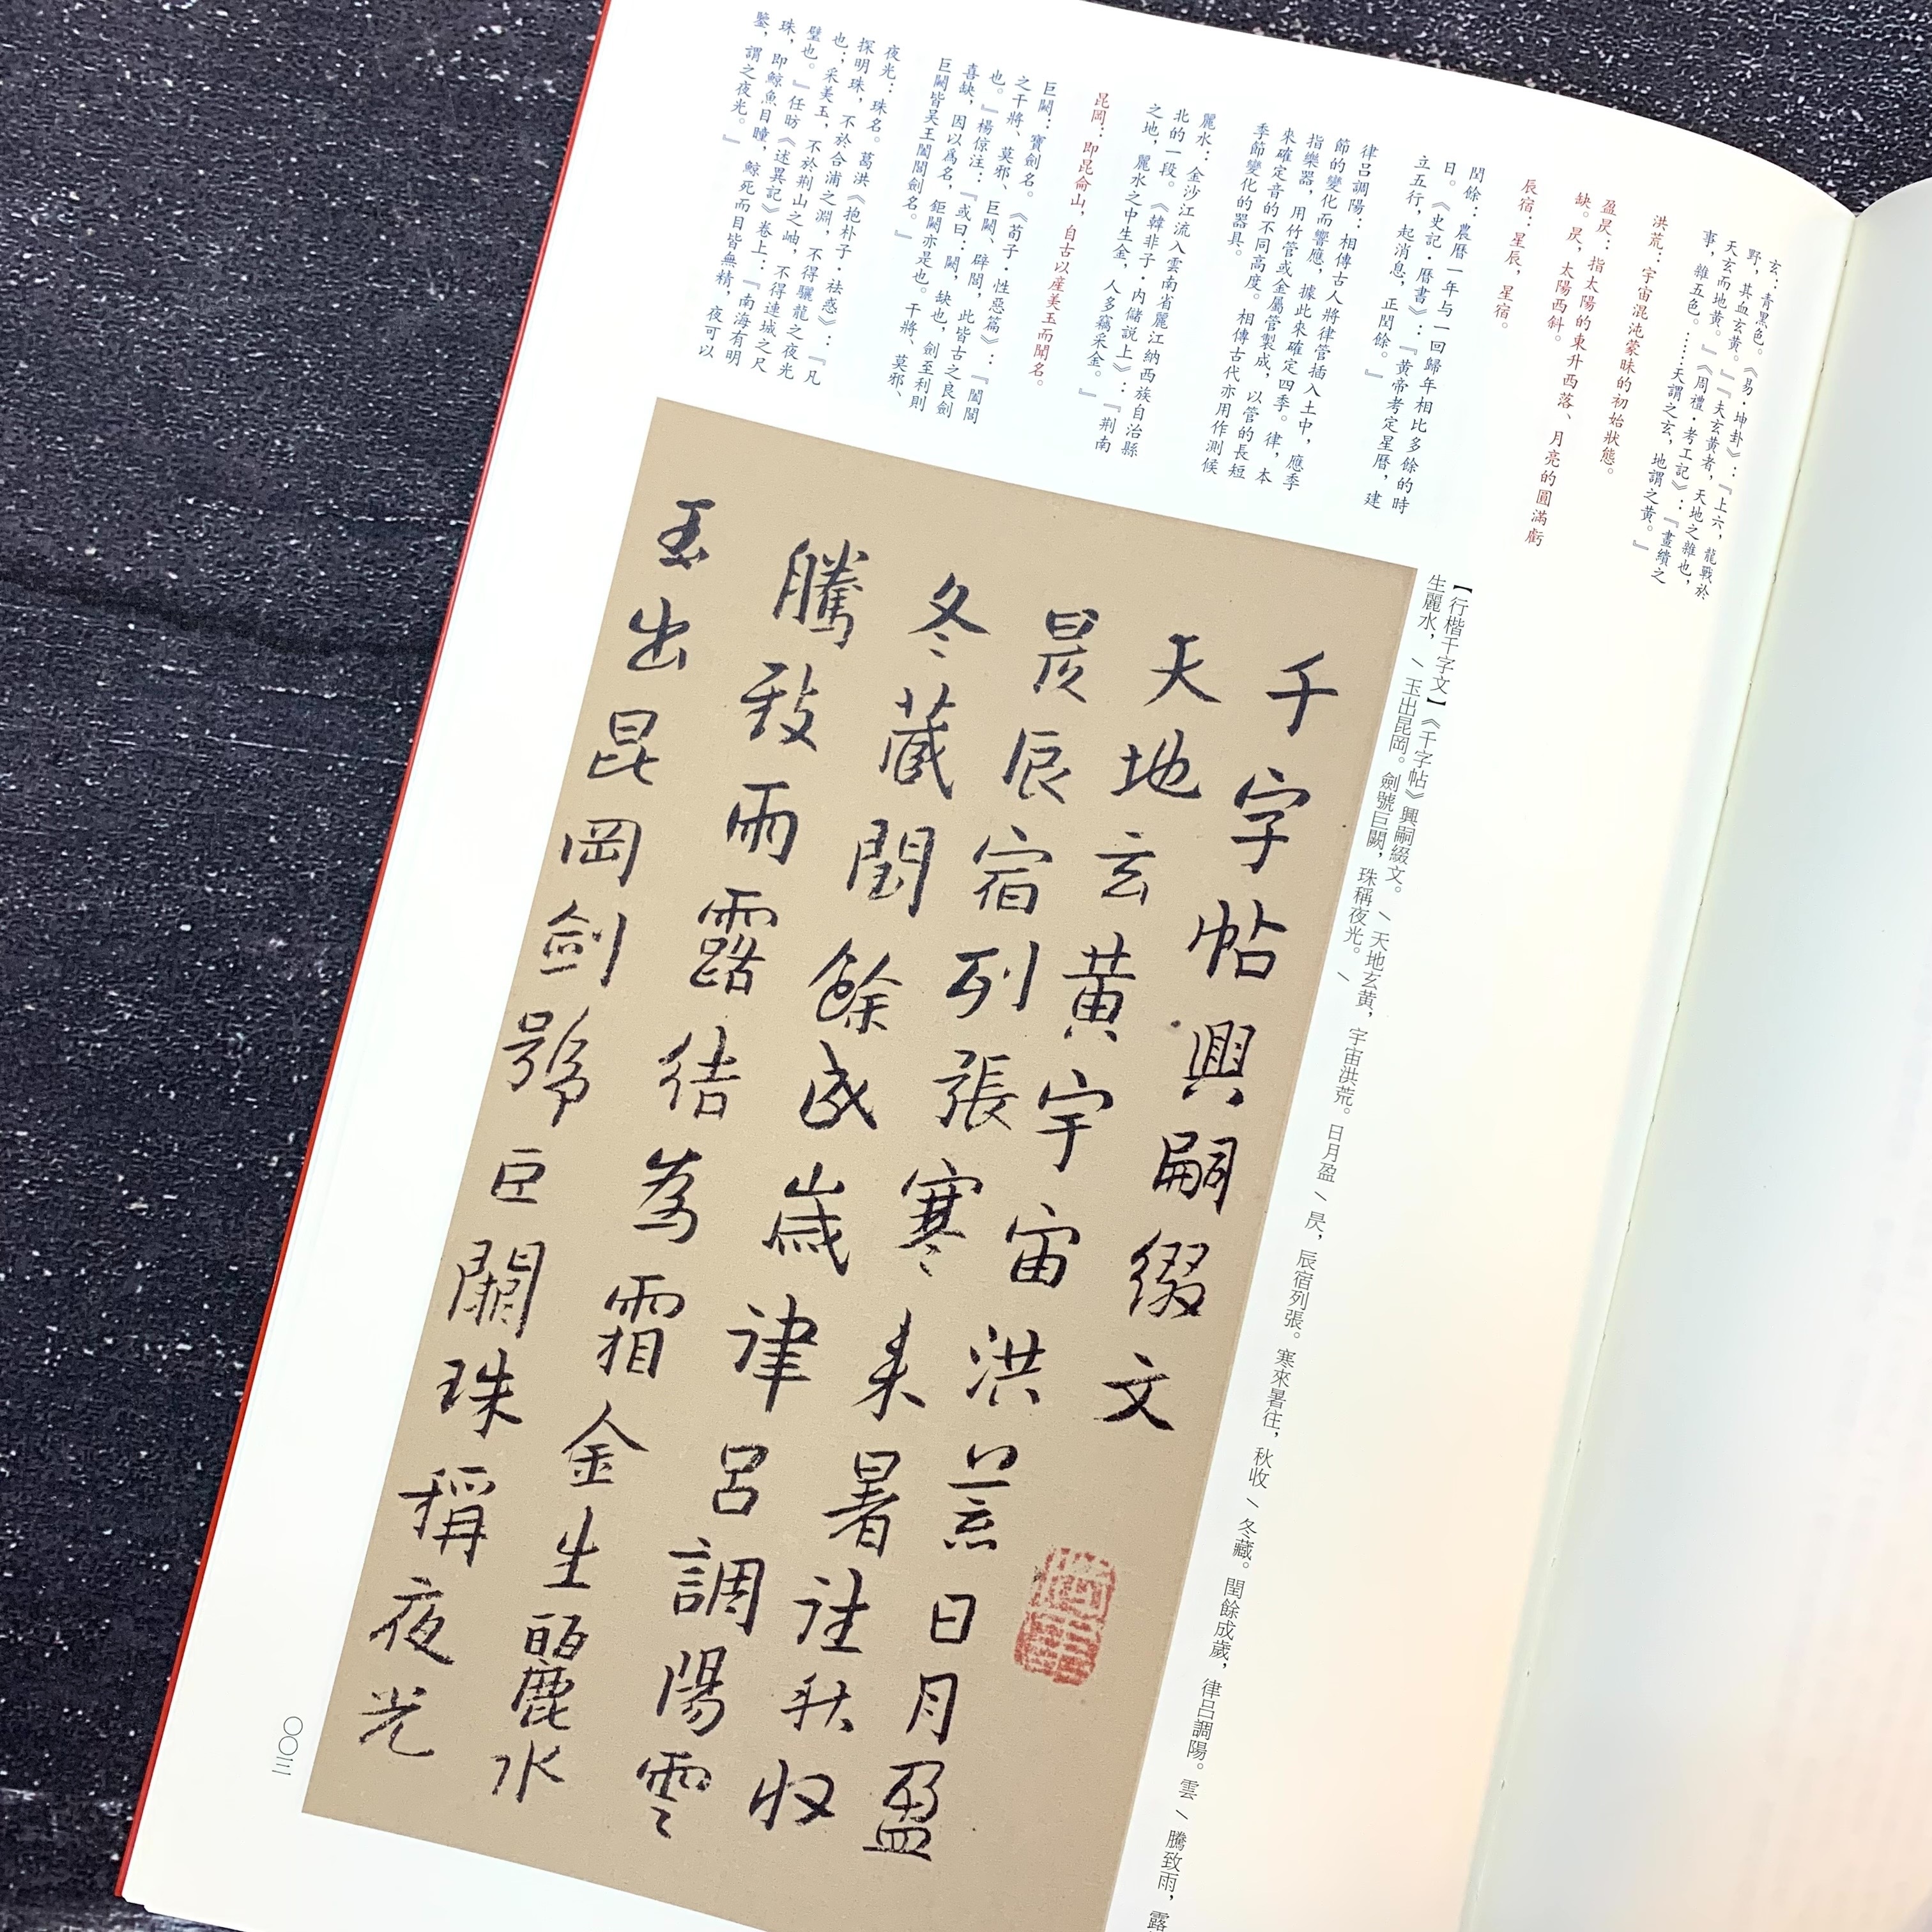 玄：青黑色。《易·坤卦》：『上六，龍戰於
野，其血玄黄。』『夫玄黄者，天地之雜也，
天玄而地黄。』《周禮·考工記》：『畫繢之
事，雜五色。……天謂之玄，地謂之黄。』
洪荒：宇宙混沌蒙昧的初始狀態。
盈昃：指太陽的東升西落、月亮的圓滿虧
缺。昃，太陽西斜。
辰宿：星辰，星宿。
閏餘：農曆一年与一回歸年相比多餘的時
日。《史記·曆書》：『黄帝考定星曆，建
立五行，起消息，正閏餘。』
律吕調陽：相傳古人將律管插入土中，應季
節的變化而響應，據此來確定四季。律，本
指樂器，用竹管或金屬管製成，以管的長短
來確定音的不同高度。相傳古代亦用作測候
季節變化的器具。
麗水：金沙江流入雲南省麗江納西族自治縣
北的一段。《韓非子·内儲説上》：『荆南
之地，麗水之中生金，人多竊采金。』
昆岡：即昆侖山，自古以産美玉而聞名。
巨闕：寶劍名。《荀子·性惡篇》：『闔閭
之干將、莫邪、巨闕、辟閭，此皆古之良劍
也。』楊倞注：『或曰：闕，缺也，劍至利則
喜缺，因以爲名，鉅闕亦是也。干將、莫邪、
巨闕皆吴王闔閭劍名。』
夜光：珠名。葛洪《抱朴子·祛惑》：『凡
探明珠，不於合浦之淵，不得驪龍之夜光
也；采美玉，不於荆山之岫，不得連城之尺
璧也。』任昉《述異記》卷上：『南海有明
珠，即鯨魚目瞳，鯨死而目皆無精，夜可以
鑒，謂之夜光。』
【行楷千字文】《千字帖》興嗣綴文。\天地玄黄，宇宙洪荒。日月盈\昃，辰宿列張。寒來暑往，秋收\冬藏。閏餘成歲，律吕調陽。雲\騰致雨，露
生麗水，\玉出昆岡。劍號巨闕，珠稱夜光。\
千字帖興嗣綴文
天地玄黄宇宙洪荒日月盈
昃辰宿列張寒来暑往秋收
冬藏閏餘成歲律吕調陽雲
騰致雨露結為霜金生麗水
玉出昆岡劍號巨闕珠稱夜光
〇〇三